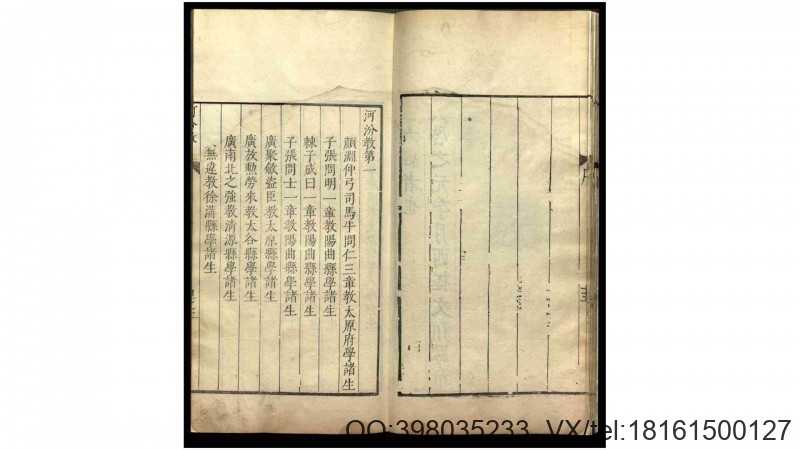 河汾教第一
顏淵仲弓司馬牛問仁三章教太原府學諸生
子張問明一章教陽曲縣學諸生
棘子成曰一章教陽曲縣學諸生
子張問士一章教陽曲縣學諸生
廣聚斂盜臣教太原縣學諸生
廣放勲勞來教太谷縣學諸生
廣南北之強教清源縣學諸生
無違教徐溝縣學諸生
河汾教
QQ:398035233 VX/tel:18161500127